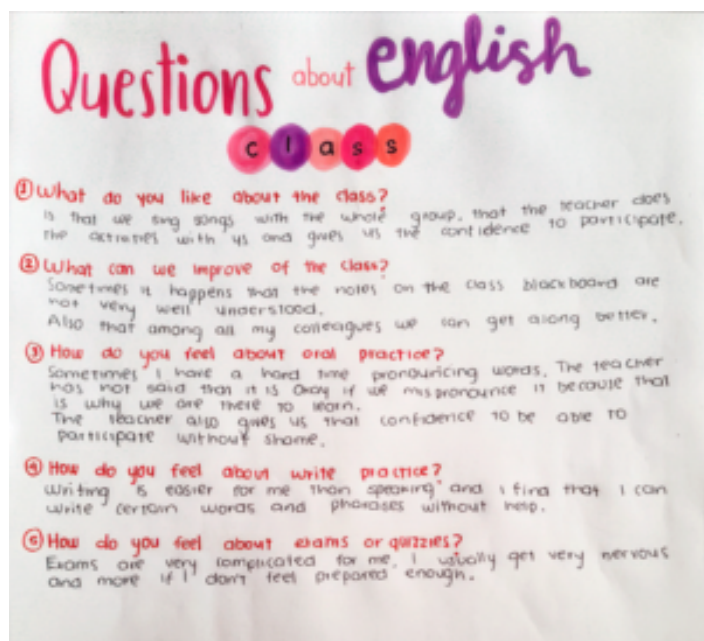 Questions about english
class
① What do you like about the class?
Is that we sing songs with the whole group. that the teacher does
the activities with us and gives us the confidence to participate.
② What can we improve of the class?
Sometimes it happens that the notes on the class blackboard are
not very well understood.
Also that among all my colleagues we can get along better.
③ How do you feel about oral practice?
Sometimes I have a hard time pronouricing words. The teacher
has not said that it is okay if we mispronounce it because that
is why we are there to learn.
The teacher also gives us that confidence to be able to
participate without shame.
④ How do you feel about write practice?
Writing is easier for me than speaking and I find that I can
write certain words and pharases without help.
⑤ How do you feel about exams or quizzies?
Exams are very complicated for me. I usually get very nervous
and more if I don't feel prepared enough.